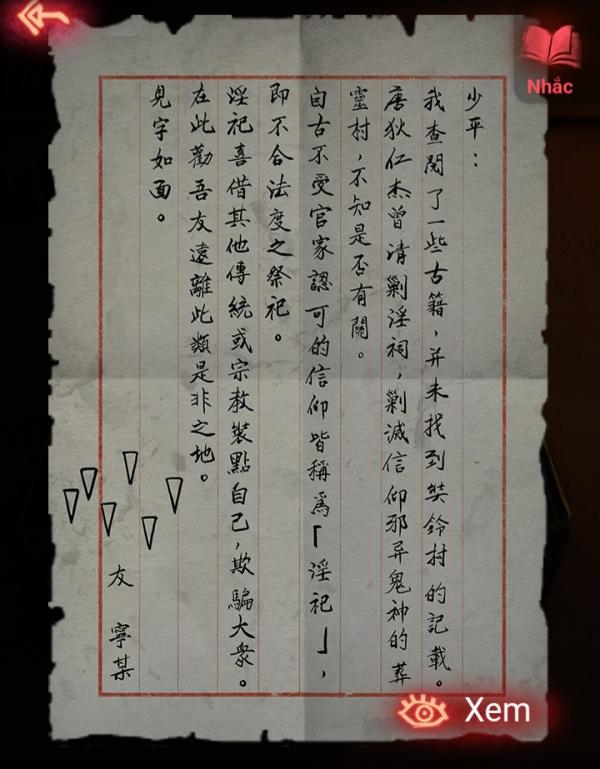 少平：
我查閱了一些古籍，并未找到奘鈴村的記載。
唐狄仁杰曾清剿淫祠，剿滅信仰邪异鬼神的葬
靈村，不知是否有關。
自古不受官家認可的信仰皆稱爲「淫祀」，
即不合法度之祭祀。
淫祀喜借其他傳統或宗教裝點自己，欺騙大衆。
在此勸吾友遠離此類是非之地。
見字如面。
友 寧某
Nhắc
Xem